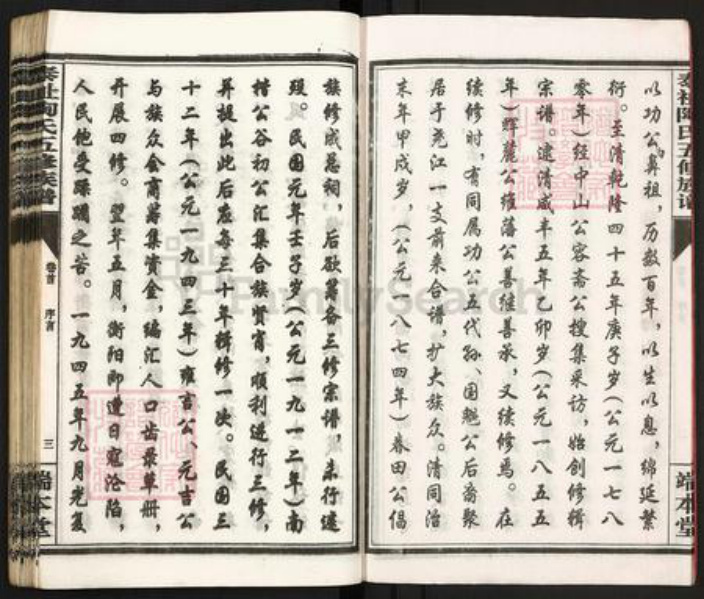 以功公鼻祖，历数百年，以生以息，绵延繁
衍。至清乾隆四十五年庚子岁（公元一七八
零年）经中山公容斋公搜集采访，始创修辑
宗谱。逮清咸丰五年乙卯岁（公元一八五五
年）辉麓公维藩公善继善承，又续修焉。在
续修时，有同属功公五代孙、国魁公后裔聚
居于尧江一支前来合谱，扩大族众。清同治
末年甲戌岁，（公元一八七四年）春田公倡
族修戚恳祠，后欲筹备三修宗谱，未行逮
殁。民国元年壬子岁（公元一九一二年）南
楷公谷初公汇集合族贤肖，顺利进行三修，
并提出此后应每三十年辑修一次。民国三
十二年（公元一九四三年）雍吉公、元吉公
与族众会商筹集资金，编汇人口齿录草册，
开展四修。翌年五月，衡阳即遭日寇沦陷，
人民饱受蹂躏之苦。一九四五年九月光复
卷首　序言
三
端本堂
端本堂
FamilySearch